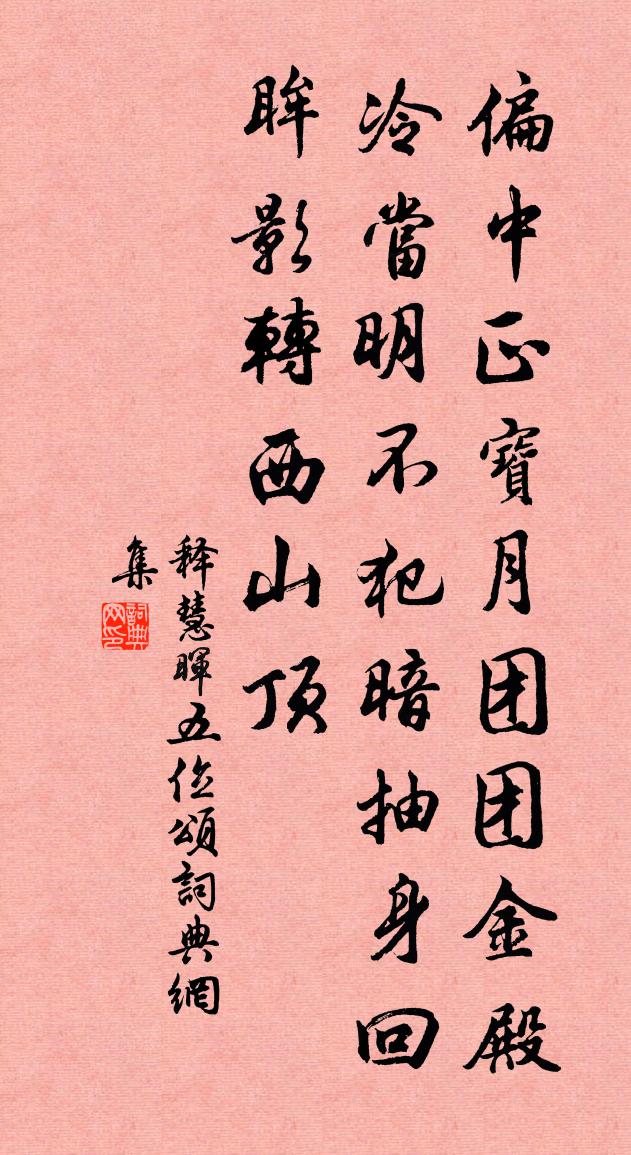 偏中正寶月团团金殿
冷當明不犯暗抽身回
眸影轉西山顶
释慧暉五位頌詞典網
集
詞典网印